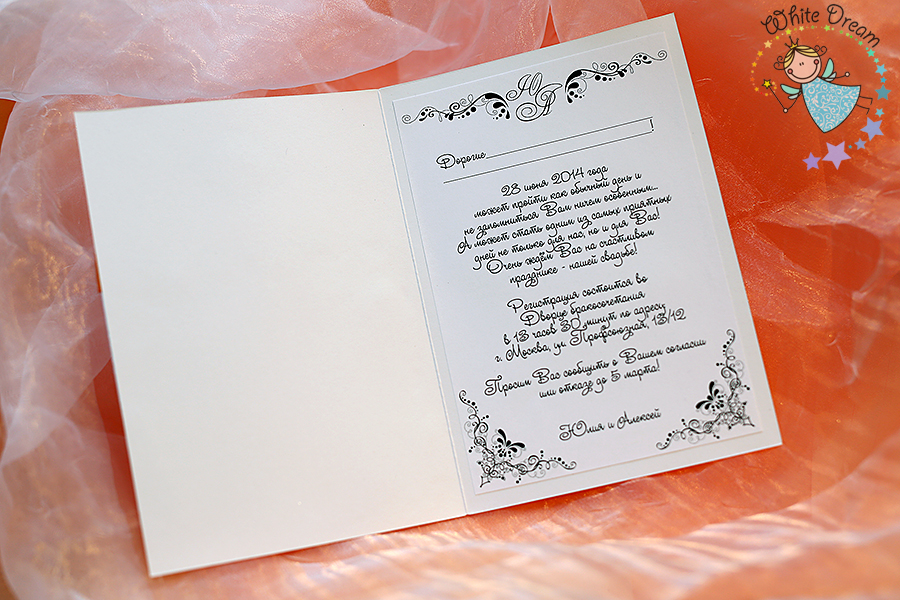 White Dream
ЮА
Дорогие !
28 июня 2014 года
может пройти как обычный день и
не запомниться Вам ничем особенным...
А может стать одним из самых приятных
дней не только для нас, но и для Вас!
Очень ждём Вас на счастливом
празднике - нашей свадьбе!
Регистрация состоится во
Дворце бракосочетания
в 13 часов 30 минут по адресу:
г. Москва, ул. Профсоюзная, 13/12
Просим Вас сообщить о Вашем согласии
или отказе до 5 марта!
Юлия и Алексей